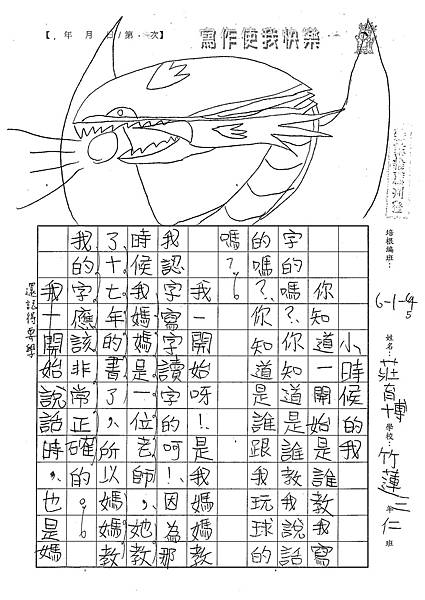 【 年 月 日/第 次】
寫作使我快樂
培根編班：
6-1-4
姓名：莊育博 學校：竹蓮 三年仁班
小時候的我
你知道一開始是誰教我寫
字的嗎？你知道是誰教我說話
的嗎？你知道是誰跟我玩球的
嗎？
我一開始呀！是我媽媽教
我認字寫字讀的呵！因為那
時候我媽媽是一位老師，她教
了十七年的書了，所以媽媽教
我的字應該非常正確的。
我一開始說話時，也是媽